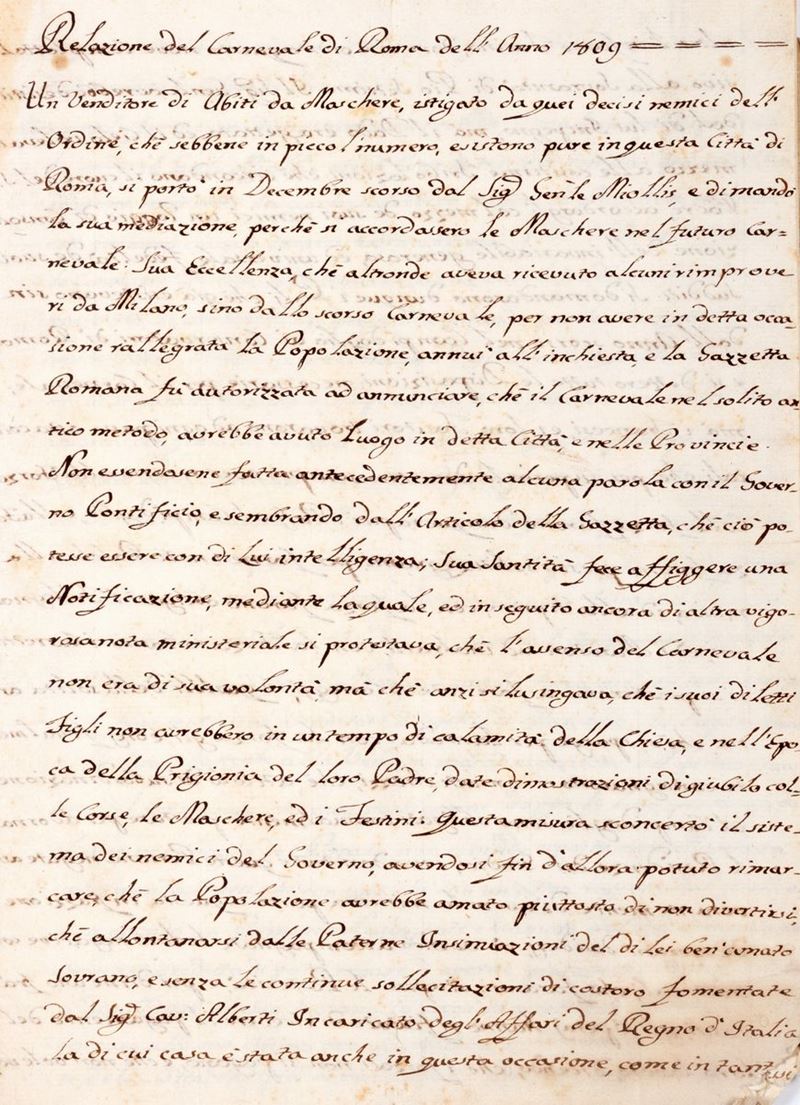 Relazione del Carnevale di Roma dell' Anno 1809 = = = =
Un Venditore di Abiti da Maschere, istigato da quei decisi nemici dell'
Ordine, chè sebbene in piccol numero, esistono pure in questa Città di
Roma, si portò in Decembre scorso dal Sig.r Gen'le Miollis, e dimandò
la sua mediazione, perchè si accordassero le Maschere nel futuro Car=
nevale: Sua Eccellenza, chè altronde aveva ricevuto alcuni rimprove
ri da Milano, sino dallo scorso Carnevale, per non avere in detta occa-
sione rallegrata la Popolazione, annuì all' inchiesta, e la Gazzetta
Romana fù autorizzata ad annunciare, chè il Carnevale nel solito an
tico metodo, avrebbe avuto Luogo in detta Città, e nelle Provincie.
Non essendosene fatta antecedentemente alcuna parola con il Gover-
no Pontificio, e sembrando dall' Articolo della Gazzetta, chè ciò po-
tesse essere con di Lui intelligenza; Sua Santità fece affiggere una
Notificazione, mediante la quale, ed in seguito ancora di altra vigo-
rosa nota ministeriale si protestava, chè l'assenso del Carnevale
non era di sua volontà, mà chè anzi si lusingava, chè i suoi diletti
Figli non avrebbero in un tempo di calamità della Chiesa, e nell' Epo
ca della Prigionia del loro Padre, date dimostrazioni di giubilo col-
le Corse, le Maschere, ed i Festini. Questa misura sconcertò il siste-
ma dei nemici del Governo, avendosi fin d'allora potuto rimar-
care, chè la Popolazione avrebbe amato piuttosto di non divertirsi,
chè allontanarsi dalle Paterne Insinuazioni del di lei ben'amato
Sovrano, e senza le continue sollecitazioni di costoro fomentate
dal Sig.r Cav: Alberti Incaricato degl'Affari del Regno d'Italia
la di cui casa è stata anche in questa occasione, come in tant